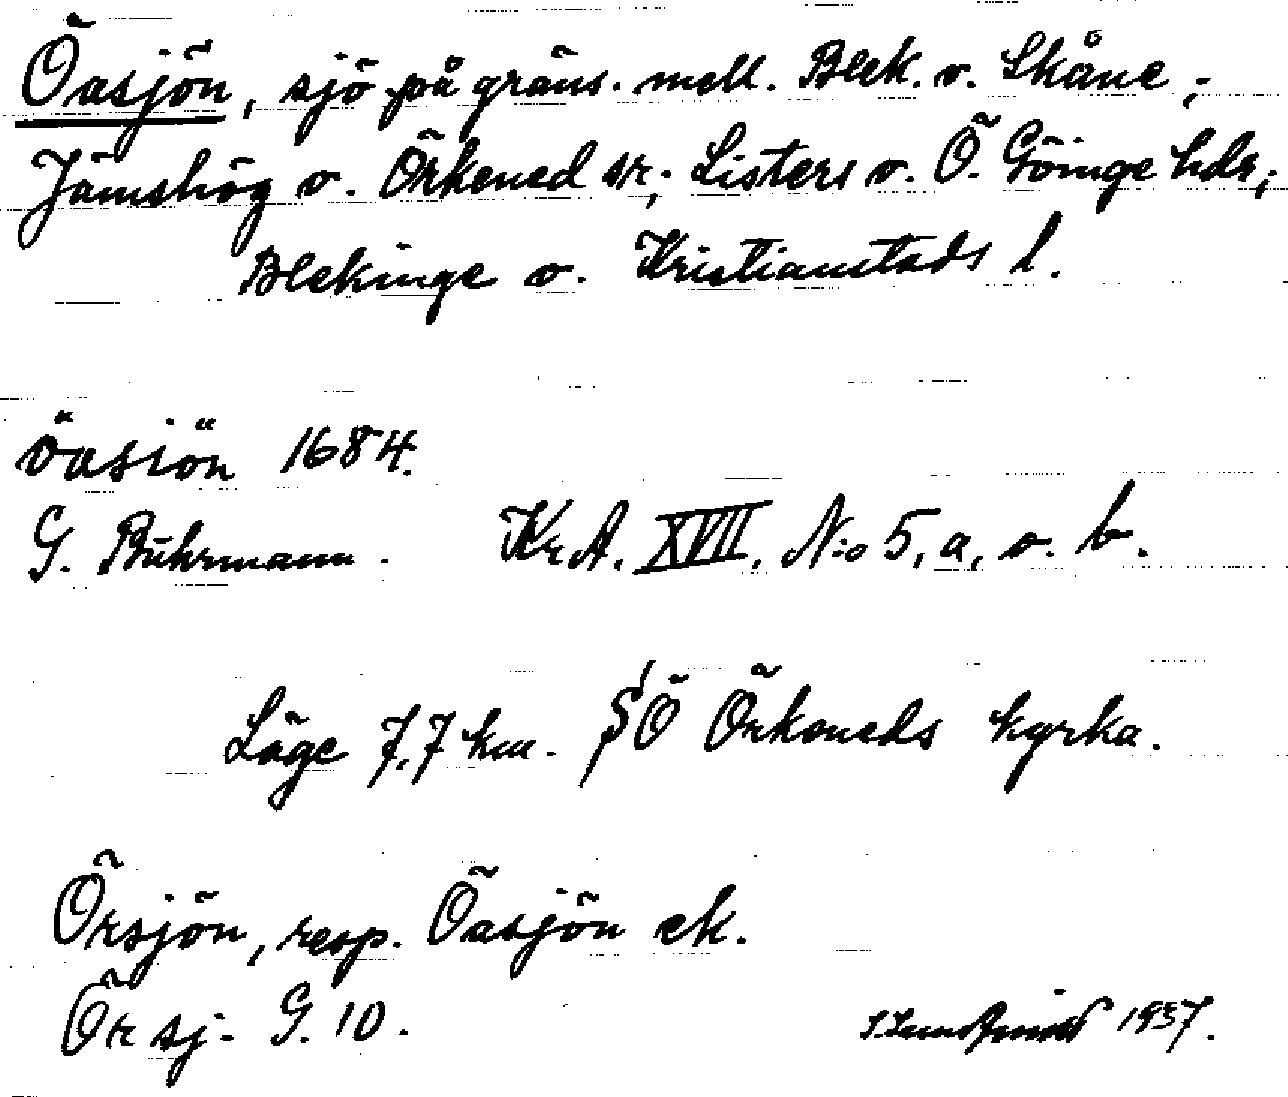 Öasjön, sjö på gräns. mell. Blek. o. Skåne,;
Jämshög o. Örkened sr; Listers o. Ö. Göinge hds;
Blekinge o. Kristianstads l.
öasiön 1684.
G. Buhrmann. Kr.A. XVII. N:o 5, a, o. b.
Läge 7,7 km. SÖ Örkeneds kyrka.
Örsjön, resp. Öasjön ek.
Örsj. G. 10.
1937.